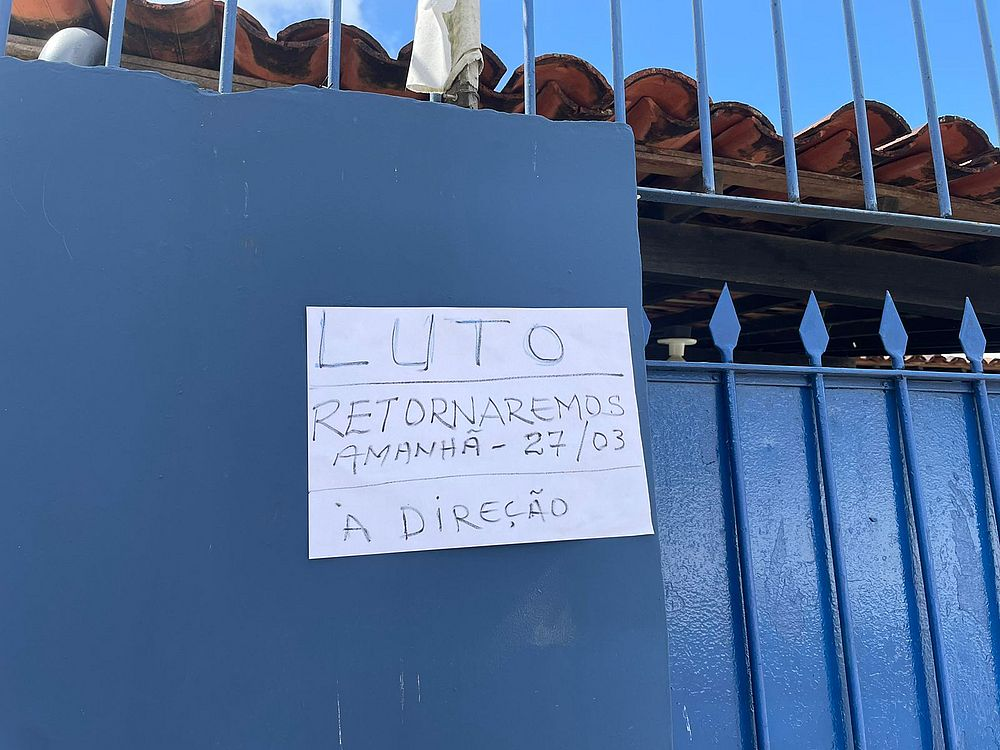 LUTO
RETORNAREMOS
AMANHÃ - 27/03
À DIREÇÃO